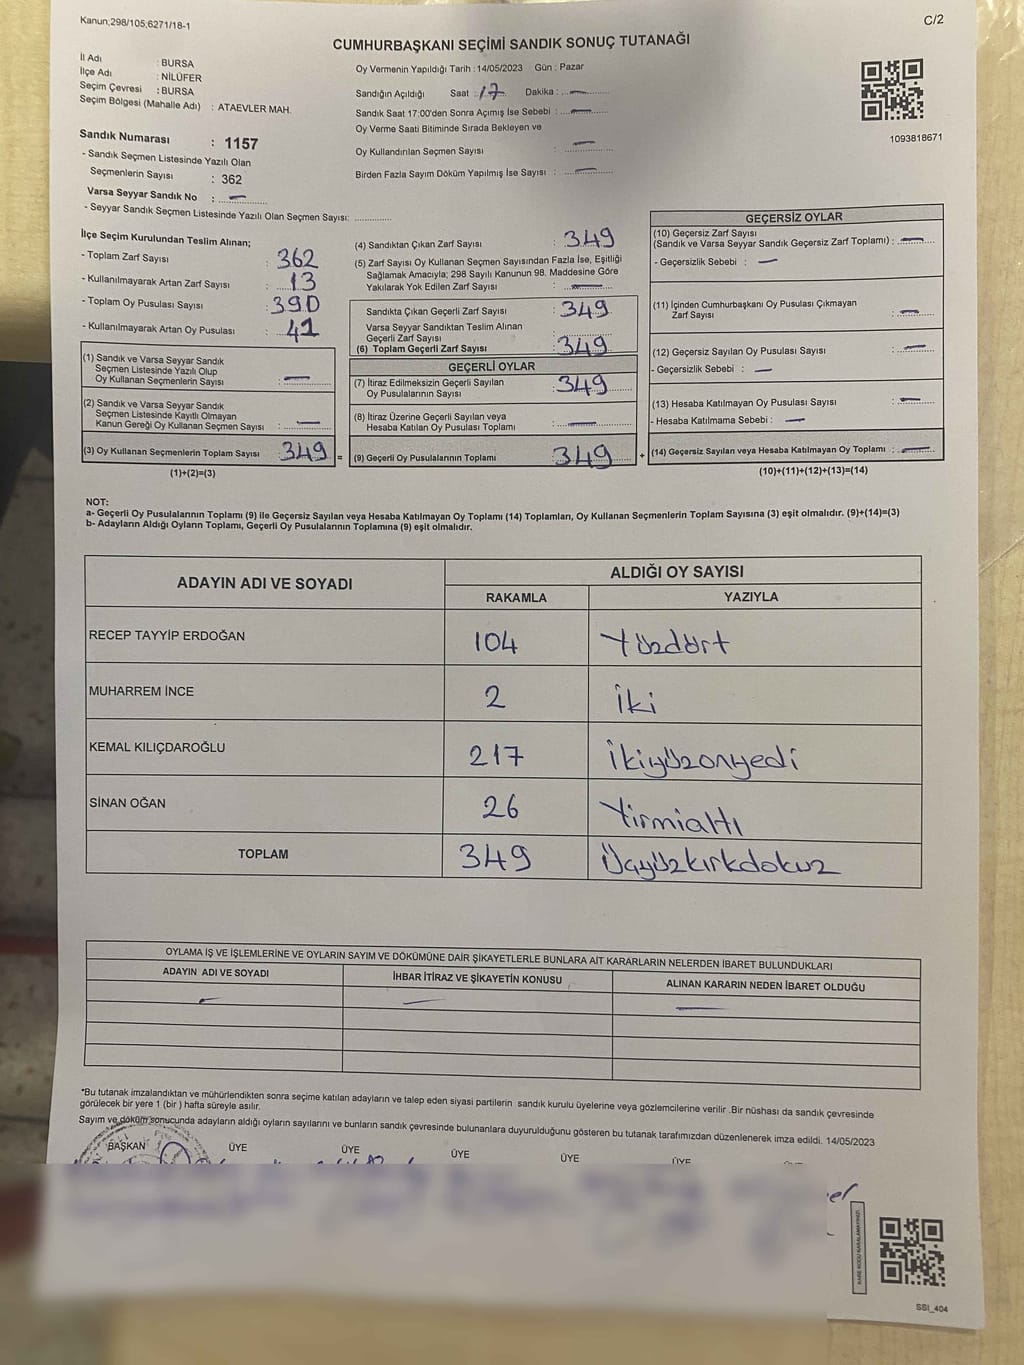 Kanun;298/105;6271/18-1
C/2
CUMHURBAŞKANI SEÇİMİ SANDIK SONUÇ TUTANAĞI
İl Adı : BURSA
İlçe Adı : NİLÜFER
Seçim Çevresi : BURSA
Seçim Bölgesi (Mahalle Adı) : ATAEVLER MAH.
Oy Vermenin Yapıldığı Tarih : 14/05/2023 Gün : Pazar
Sandığın Açıldığı Saat : 17 Dakika : —
Sandık Saat 17:00'den Sonra Açımış İse Sebebi : —
Oy Verme Saati Bitiminde Sırada Bekleyen ve
Oy Kullandırılan Seçmen Sayısı : —
Birden Fazla Sayım Döküm Yapılmış İse Sayısı : —
1093818671
Sandık Numarası : 1157
- Sandık Seçmen Listesinde Yazılı Olan
Seçmenlerin Sayısı : 362
Varsa Seyyar Sandık No : —
- Seyyar Sandık Seçmen Listesinde Yazılı Olan Seçmen Sayısı: ..............
İlçe Seçim Kurulundan Teslim Alınan;
- Toplam Zarf Sayısı : 362
- Kullanılmayarak Artan Zarf Sayısı : 13
- Toplam Oy Pusulası Sayısı : 390
- Kullanılmayarak Artan Oy Pusulası : 41
(1) Sandık ve Varsa Seyyar Sandık
Seçmen Listesinde Yazılı Olup
Oy Kullanan Seçmenlerin Sayısı : —
(2) Sandık ve Varsa Seyyar Sandık
Seçmen Listesinde Kayıtlı Olmayan
Kanun Gereği Oy Kullanan Seçmen Sayısı : —
(3) Oy Kullanan Seçmenlerin Toplam Sayısı : 349
(1)+(2)=(3)
(4) Sandıktan Çıkan Zarf Sayısı : 349
(5) Zarf Sayısı Oy Kullanan Seçmen Sayısından Fazla İse, Eşitliği
Sağlamak Amacıyla; 298 Sayılı Kanunun 98. Maddesine Göre
Yakılarak Yok Edilen Zarf Sayısı : —
Sandıkta Çıkan Geçerli Zarf Sayısı : 349
Varsa Seyyar Sandıktan Teslim Alınan
Geçerli Zarf Sayısı :
(6) Toplam Geçerli Zarf Sayısı : 349
GEÇERLİ OYLAR
(7) İtiraz Edilmeksizin Geçerli Sayılan
Oy Pusulalarının Sayısı : 349
(8) İtiraz Üzerine Geçerli Sayılan veya
Hesaba Katılan Oy Pusulası Toplamı : —
= (9) Geçerli Oy Pusulalarının Toplamı 349
GEÇERSİZ OYLAR
(10) Geçersiz Zarf Sayısı
(Sandık ve Varsa Seyyar Sandık Geçersiz Zarf Toplamı) : —
- Geçersizlik Sebebi : —
(11) İçinden Cumhurbaşkanı Oy Pusulası Çıkmayan
Zarf Sayısı : —
(12) Geçersiz Sayılan Oy Pusulası Sayısı : —
- Geçersizlik Sebebi : —
(13) Hesaba Katılmayan Oy Pusulası Sayısı : —
- Hesaba Katılmama Sebebi : —
+ (14) Geçersiz Sayılan veya Hesaba Katılmayan Oy Toplamı : —
(10)+(11)+(12)+(13)=(14)
NOT:
a- Geçerli Oy Pusulalarının Toplamı (9) ile Geçersiz Sayılan veya Hesaba Katılmayan Oy Toplamı (14) Toplamları, Oy Kullanan Seçmenlerin Toplam Sayısına (3) eşit olmalıdır. (9)+(14)=(3)
b- Adayların Aldığı Oyların Toplamı, Geçerli Oy Pusulalarının Toplamına (9) eşit olmalıdır.
ADAYIN ADI VE SOYADI
ALDIĞI OY SAYISI
RAKAMLA YAZIYLA
RECEP TAYYİP ERDOĞAN 104 Yüzdört
MUHARREM İNCE 2 İki
KEMAL KILIÇDAROĞLU 217 İkiyüzonyedi
SİNAN OĞAN 26 Yirmialtı
TOPLAM 349 Üçyüzkırkdokuz
OYLAMA İŞ VE İŞLEMLERİNE VE OYLARIN SAYIM VE DÖKÜMÜNE DAİR ŞİKAYETLERLE BUNLARA AİT KARARLARIN NELERDEN İBARET BULUNDUKLARI
ADAYIN ADI VE SOYADI İHBAR İTİRAZ VE ŞİKAYETİN KONUSU ALINAN KARARIN NEDEN İBARET OLDUĞU
— — —
*Bu tutanak imzalandıktan ve mühürlendikten sonra seçime katılan adayların ve talep eden siyasi partilerin sandık kurulu üyelerine veya gözlemcilerine verilir .Bir nüshası da sandık çevresinde
görülecek bir yere 1 (bir ) hafta süreyle asılır.
Sayım ve döküm sonucunda adayların aldığı oyların sayılarını ve bunların sandık çevresinde bulunanlara duyurulduğunu gösteren bu tutanak tarafımızdan düzenlenerek imza edildi. 14/05/2023
BAŞKAN ÜYE ÜYE ÜYE ÜYE ÜYE
KARE KODU KARALAMAYINIZ.
SSI_404